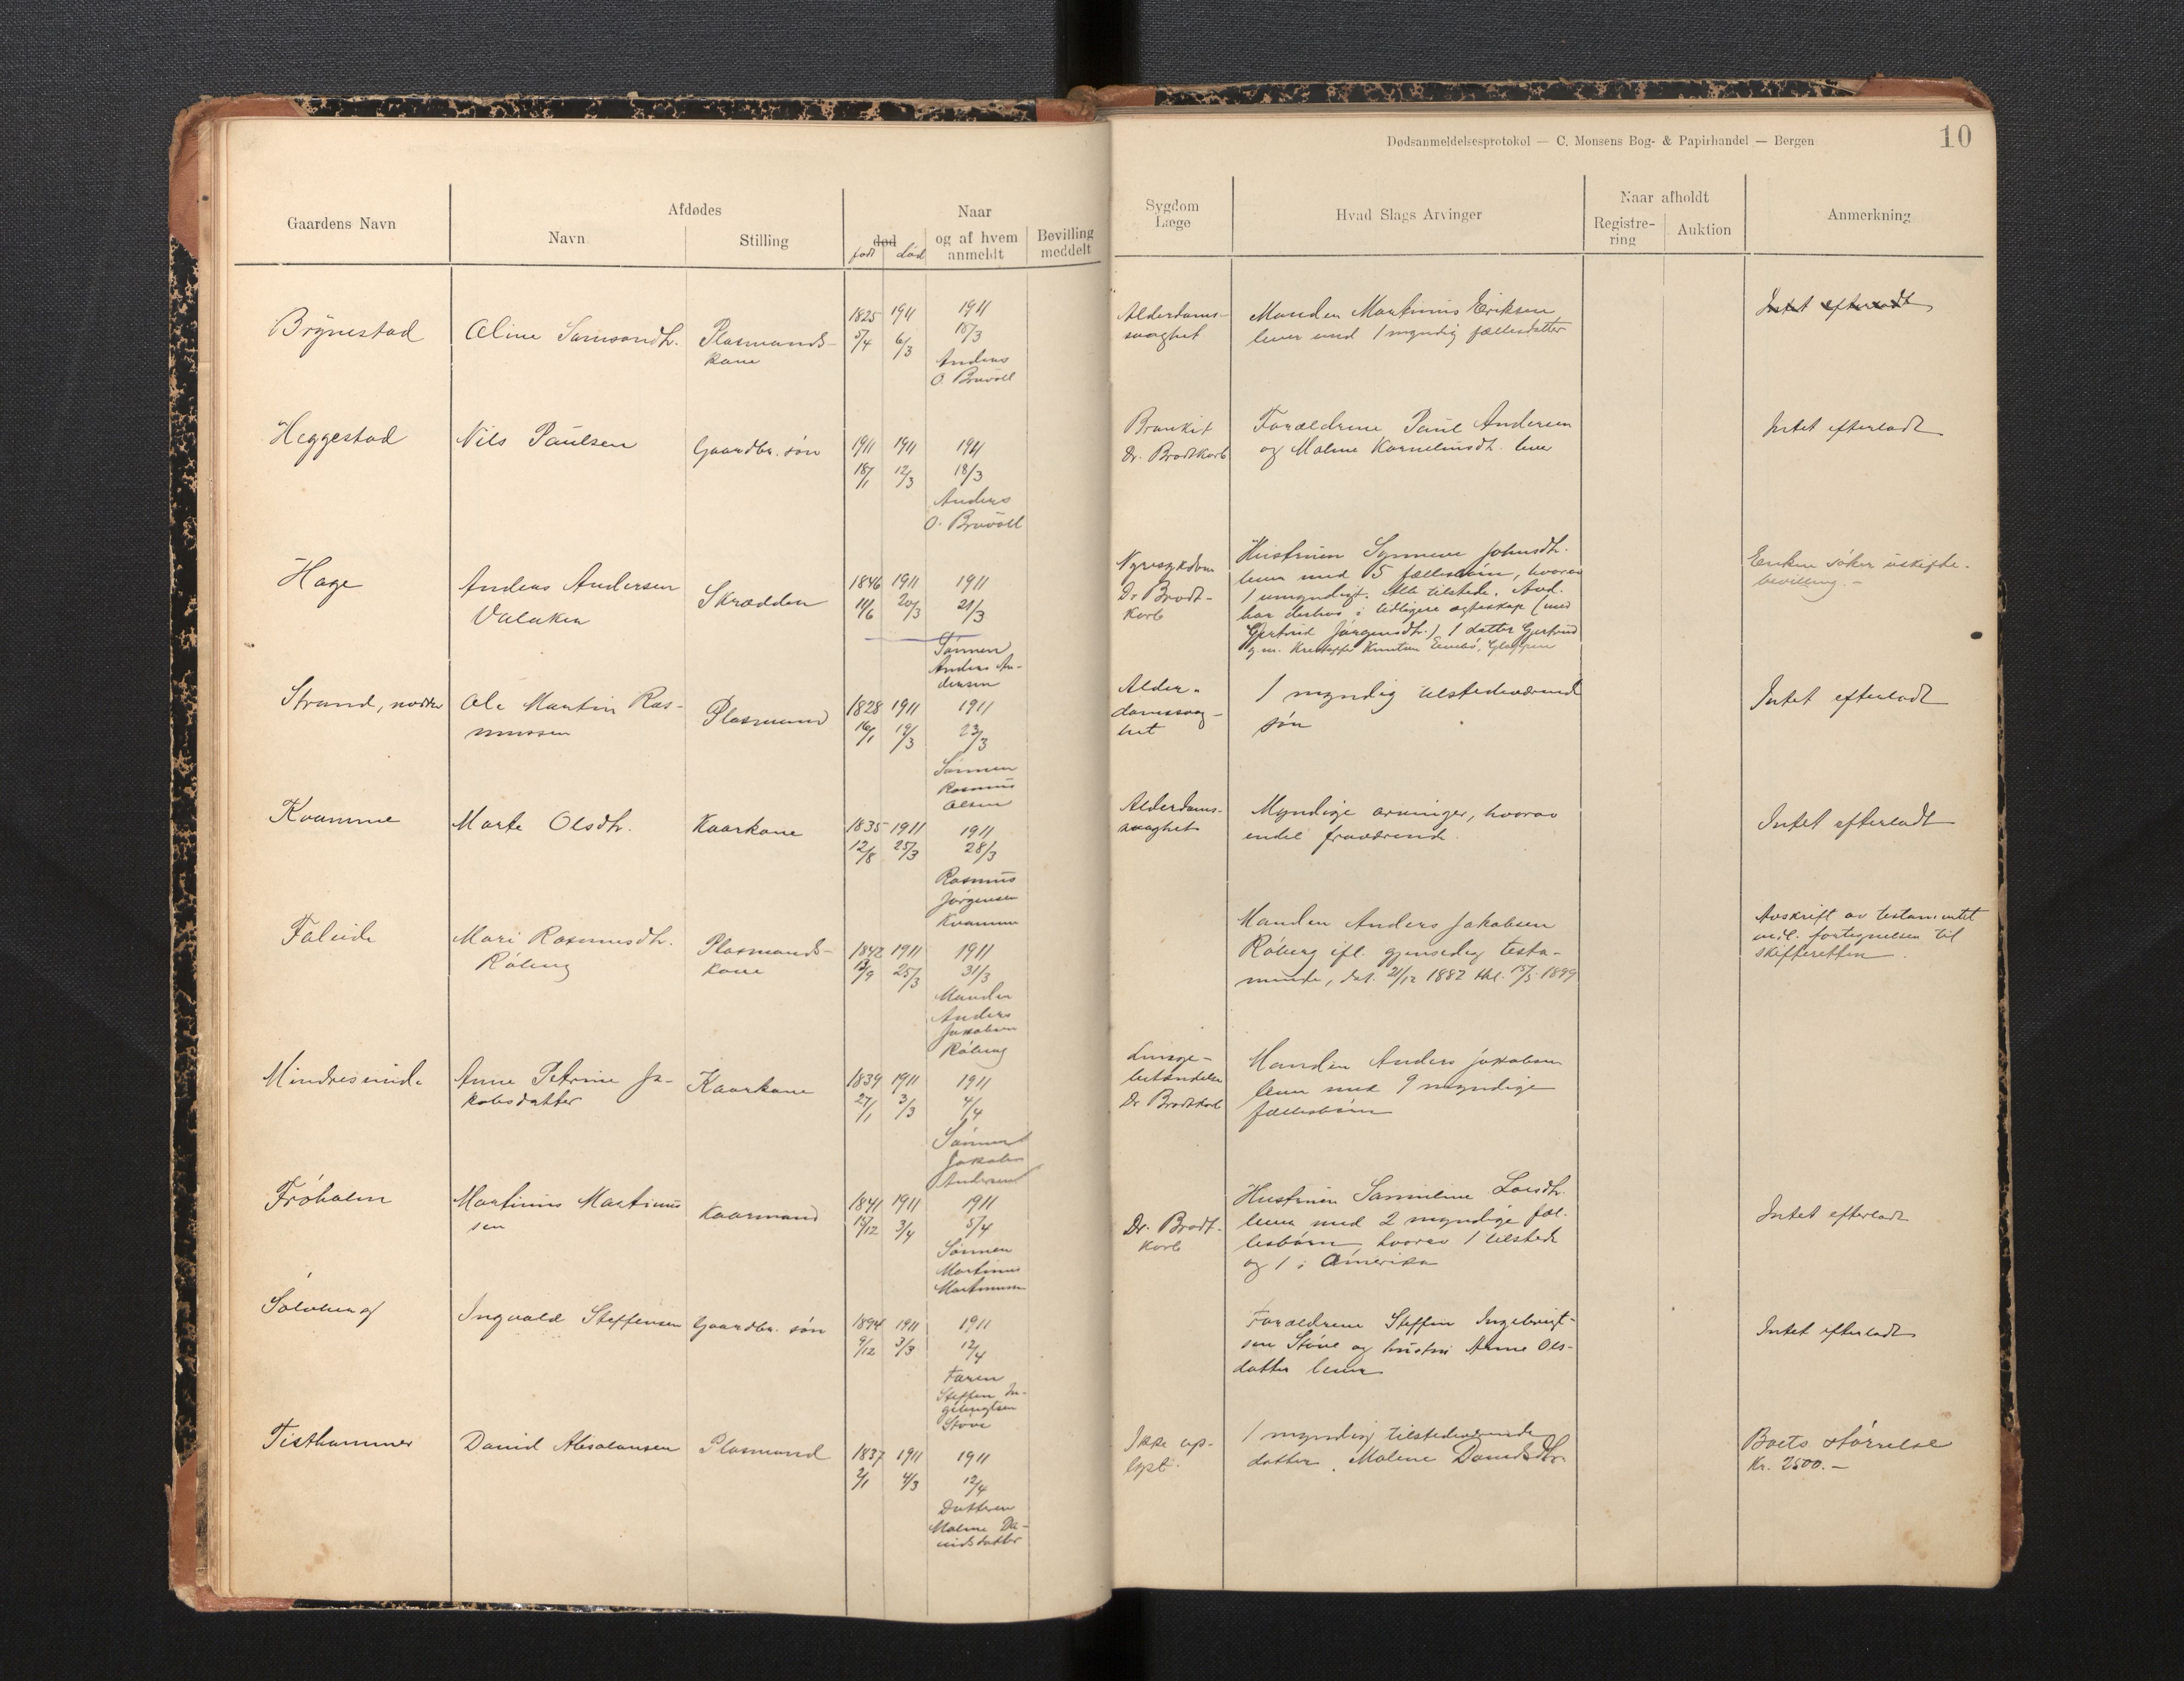 Dødsanmeldelsesprotokol — C. Monsens Bog- & Papirhandel — Bergen
10
Gaardens Navn
Afdødes
Navn
Stilling
Naar
død
født død
og af hvem
anmeldt
Bevilling
meddelt
Sygdom
Læge
Hvad Slags Arvinger
Naar afholdt
Registre-
ring
Auktion
Anmerkning
Brynestad
Oline Samsondtr.
Plasmands-
kone
1825 1911 1911
5/4 6/3 15/3
Anders
O. Bruvoll
Alderdoms-
svaghet
Manden Martinius Eriksen
lever med 1 myndig fællesdatter
Intet efterladt
Heggestad
Nils Paulsen
Gaardbr. søn
1911 1911 1911
18/1 12/3 18/3
Anders
O. Bruvoll
Bronkit
Dr. Brodtkorb
Forældrene Paul Andersen
og Malene Korneliusdtr. lever
Intet efterladt
Hage
Anders Andersen
Valaker
Skrædder
1846 1911 1911
11/6 20/3 21/3
Sønnen
Anders An-
dersen
Nyresygdom
Dr Brodt-
korb
Hustruen Synneve Johnsdtr.
lever med 5 fællesbørn, hvorav
1 umyndigt. Alle tilstede. Avd.
har derhos i tidligere egteskap (med
Gjertrud Jørgensdtr.) 1 datter Gjertrud
g.m. Kristoffer Knutsen
Enken søker uskifte-
bevilling.-
Strand, nordre
Ole Martin Ras-
mussen
Plasmand
1828 1911 1911
16/1 19/3 23/3
Sønnen
Rasmus
Olsen
Alder-
domssvag-
het
1 myndig tilstedeværende
søn
Intet efterladt
Kvamme
Marte Olsdtr.
Kaarkone
1835 1911 1911
12/8 25/3 28/3
Rasmus
Jørgensen
Kvamme
Alderdoms-
svaghet
Myndige arvinger, hvorav
endel fraværende.
Intet efterladt
Faleide
Mari Rasmusdtr.
Råberg
Plasmands-
kone
1842 1911 1911
13/9 25/3 31/3
Manden
Anders
Jakobsen
Råberg
Manden Anders Jakobsen
Råberg ifl. gjensidig testa-
mente, dat. 21/12 1882 thl. 15/3 1899
Avskrift av testamentet
vedl. fortegnelsen til
skifteretten.
Mindresunde
Anne Petrine Ja-
kobsdatter
Kaarkone
1839 1911 1911
27/1 3/3 4/4
Sønnen
Jakob
Andersen
Lunge-
betændelse
Dr Brodtkorb
Manden Anders Jakobsen
lever med 9 myndige
fællesbørn
Frøholm
Martinus Martinus
sen
Kaarmand
1841 1911 1911
15/12 3/4 5/4
Sønnen
Martinus
Martinussen
Dr. Brodt-
korb
Hustruen Samueline Larsdtr.
lever med 2 myndige fæl-
lesbørn hvorav 1 tilstede
og 1 i Amerika
Intet efterladt
Sølvberg
Ingvald Steffensen
Gaardbr. søn
1894 1911 1911
9/12 3/3 12/4
Faren
Steffen In-
gebrigtsen
Støve
Forældrene Steffen Ingebrigt-
sen Støve og hustru Anne Ols-
datter lever
Intet efterladt
Tisthammer
David Absalonsen
Plasmand
1837 1911 1911
2/1 4/3 12/4
Datteren
Malene Da-
vidsdatter
Ikke op-
lyst.
1 myndig tilstedeværende
datter, Malene Davidsdtr.
Boets størrelse
Kr. 2500.-